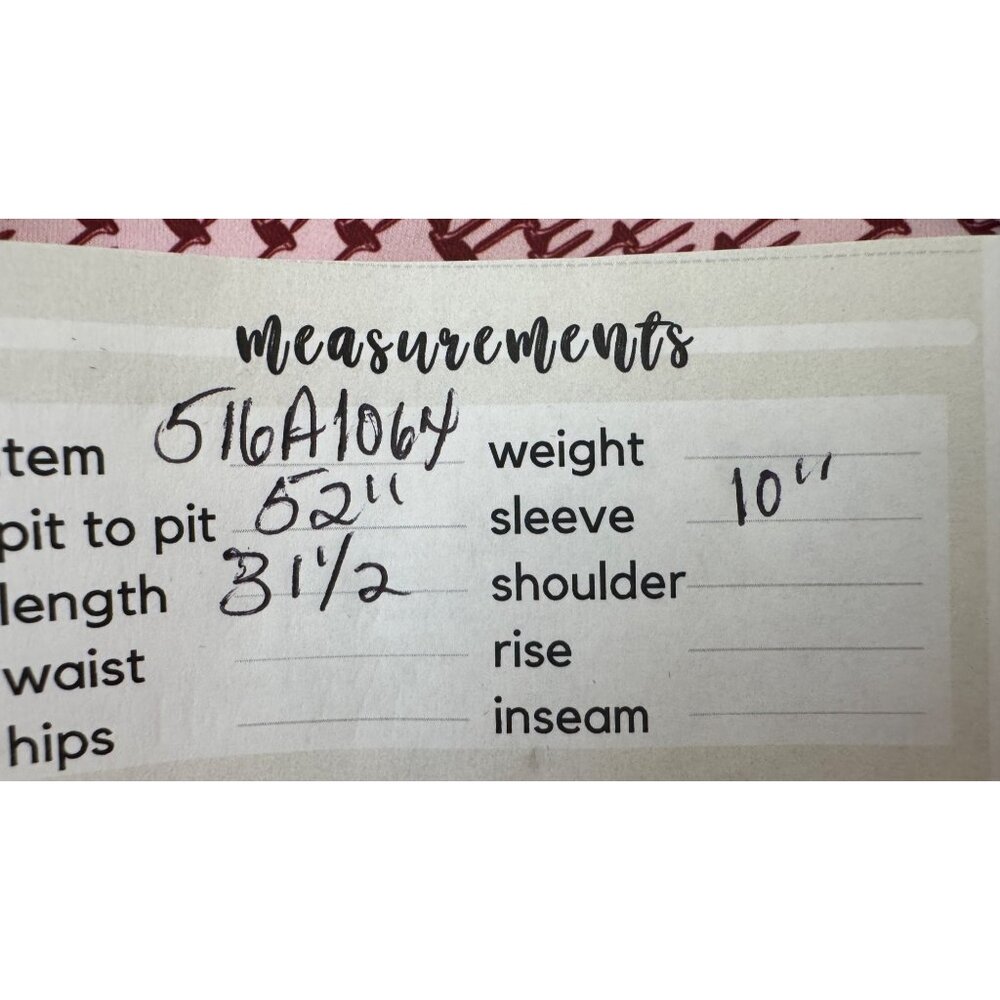 measurements
tem 516A1064 weight
pit to pit 52" sleeve 10"
length 31 1/2 shoulder
waist rise
hips inseam